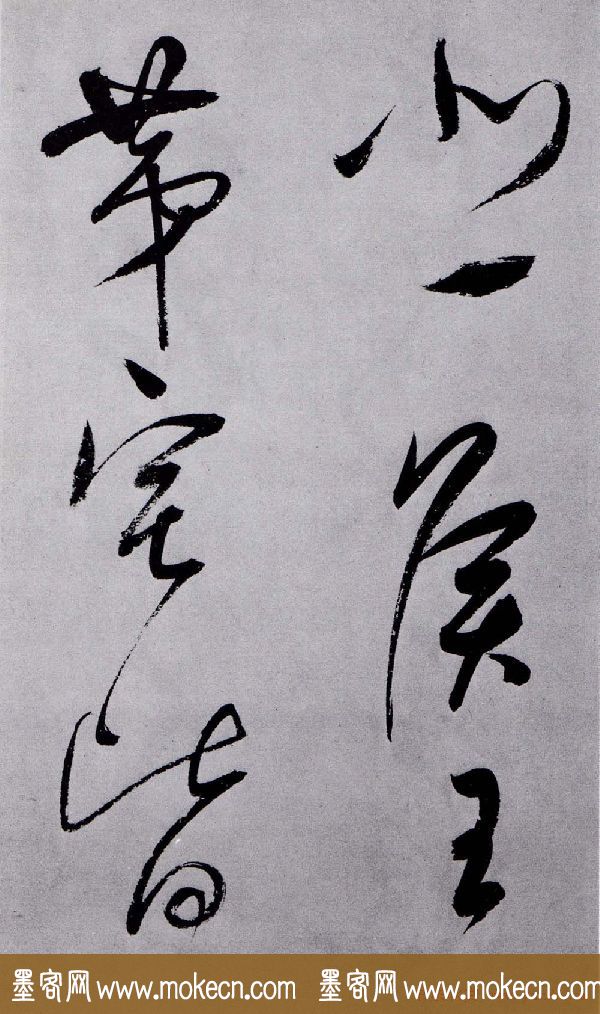 悲侯王
第宅皆
墨客网 www.mokecn.com 墨客网 www.mokecn.com